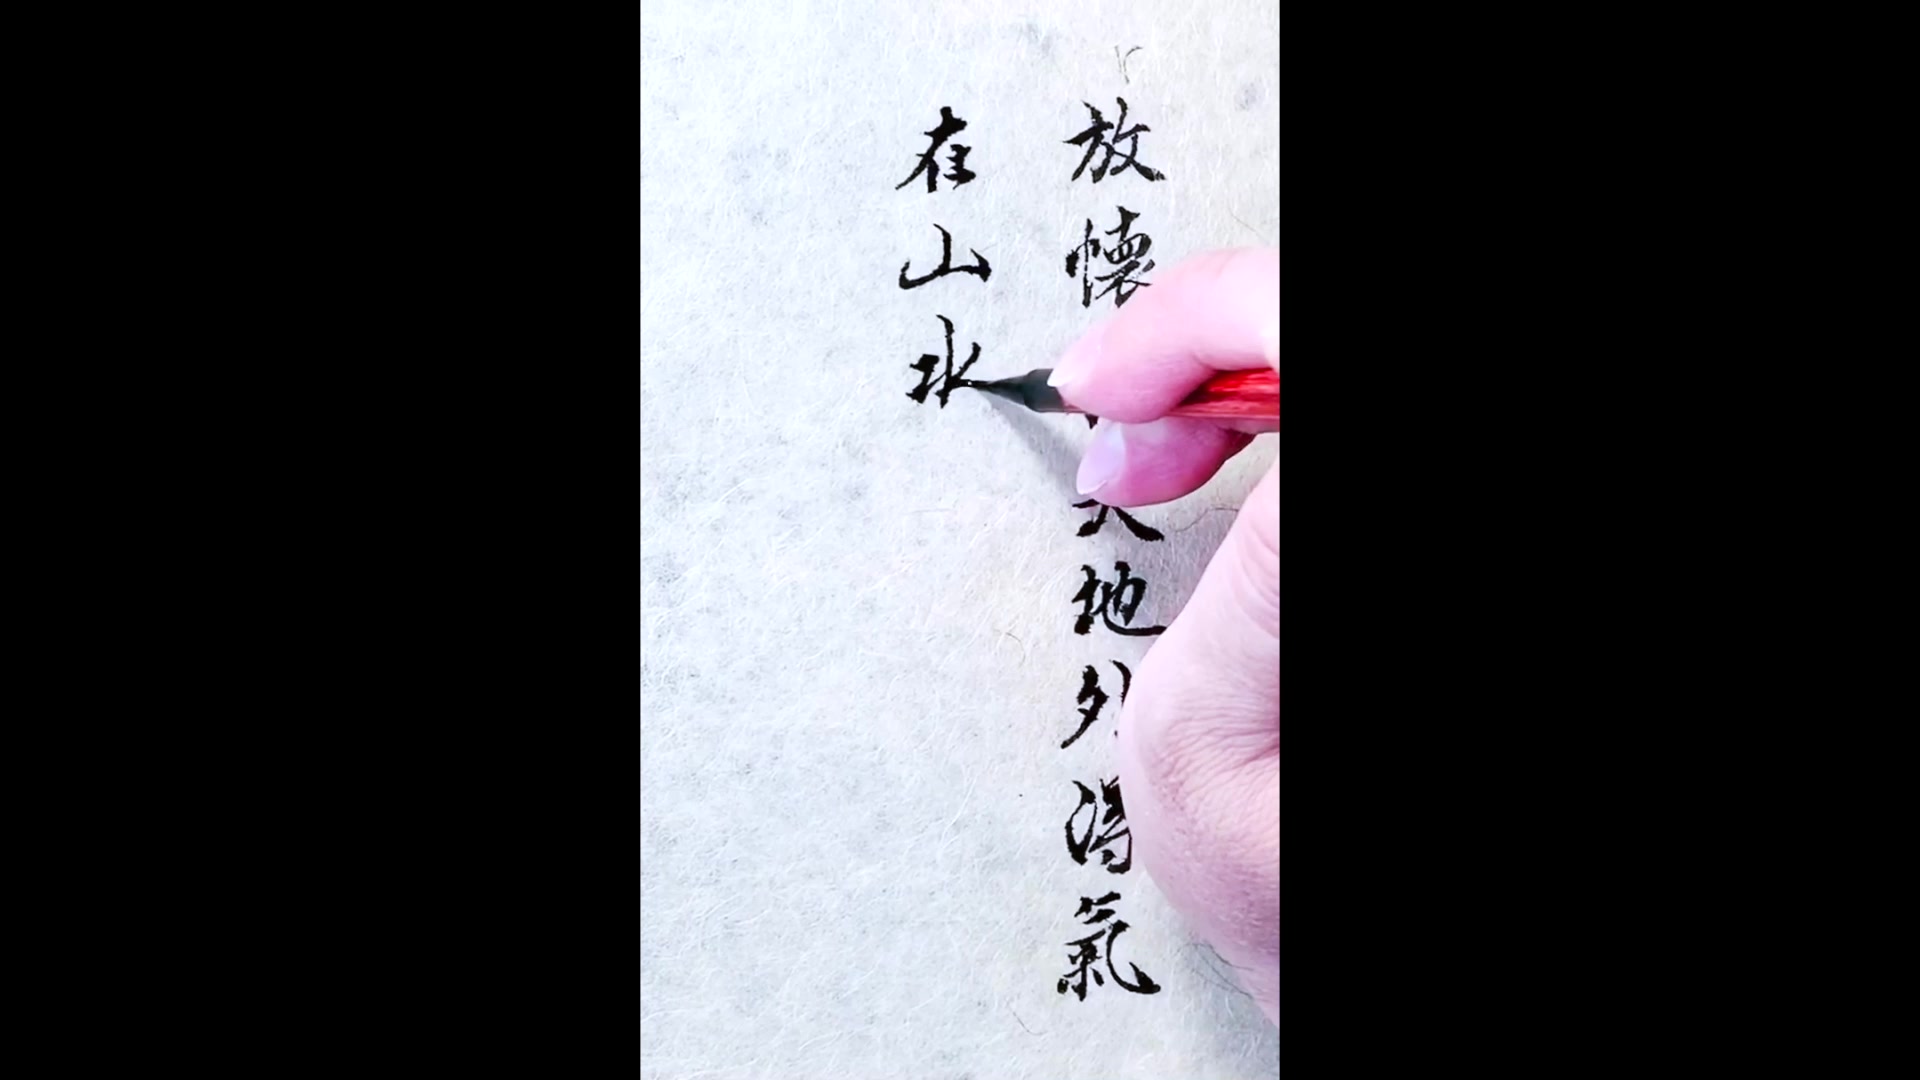 放懷地外得氣
在山水